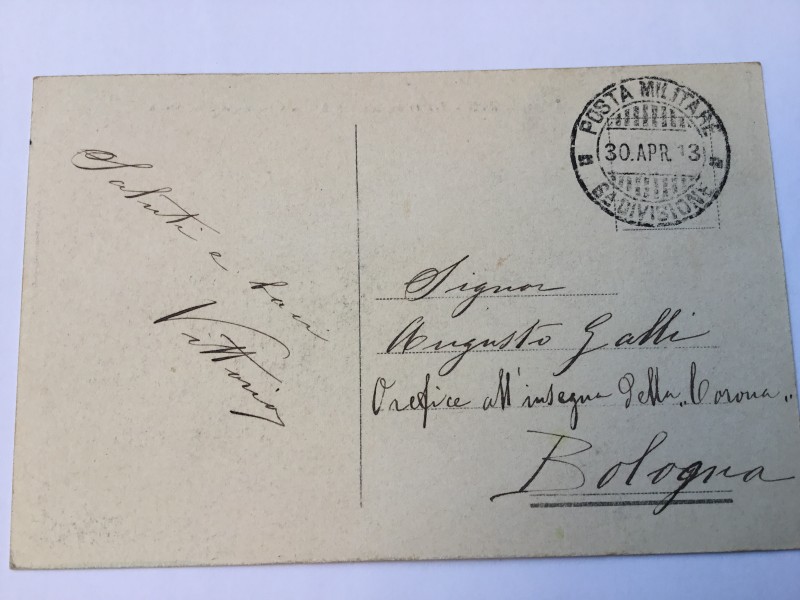 Saluti e baci
Vittorio
POSTA MILITARE
30.APR.13
6A DIVISIONE
Signor
Augusto Galli
Orefice all'insegna della „Corona„
Bologna